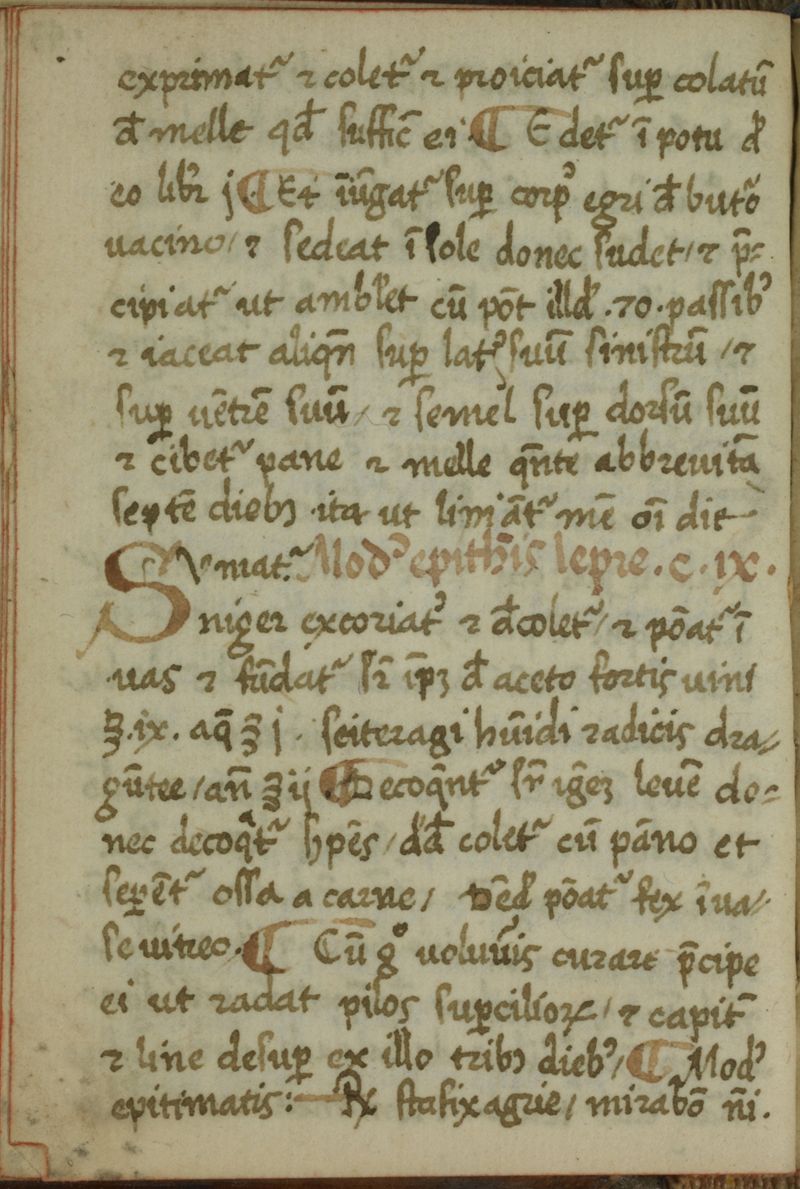 exprimatᷣ ⁊ coletᷣ ⁊ proiciatᷣ suꝑ colatū
đ melle qđ suffic̄ ei ¶ Et detᷣ ī potu đ
eo libr̄ j ¶ Et iūgatᷣ suꝑ corpꝰ egri đ butꝛ̄o
uacino / ⁊ sedeat ī sole donec sudet / ⁊ p̄=
cipiatᷣ ut ambl̄et cū pōt illđ .70. passibꝰ
⁊ iaceat aliqn̄ suꝑ latꝰ suū sinistrū / ⁊
suꝑ uētrē suū / ⁊ semel suꝑ dorsū suū
⁊ cibetᷣ pane ⁊ melle qn̄te abbreuitā
septē diebꝫ ita ut liniātᷣ mē oī die
SVmatᷣ Modꝰ epith̄is lepre . c . ix .
niger excoriatꝰ ⁊ đcoletᷣ / ⁊ pōatᷣ ī
uas ⁊ fūdatᷣ sr̄ ip̄ꝫ đ aceto fortis uini
℥ . ix . aq̄ ℥ j . sciteragi hūidi radicis dra=
gūtee / an̄ ℥ ij ¶ Decoqn̄tᷣ sr̄ igēꝫ leuē do=
nec decoqᷓtᷣ hꝭpēs / đđ coletᷣ cū pāno et
seꝑētᷣ ossa a carne / Dēđ pōatᷣ fex ī ua=
se uitreo . ¶ Cū gͦ uolūis curare p̄cipe
ei ut radat pilos suꝑcilioꝝ / ⁊ capitᷣ
⁊ line desuꝑ ex illo tribꝫ diebꝰ / ¶ Modꝰ
epitimatis : ℞ stafixagrie / mirabō nī .